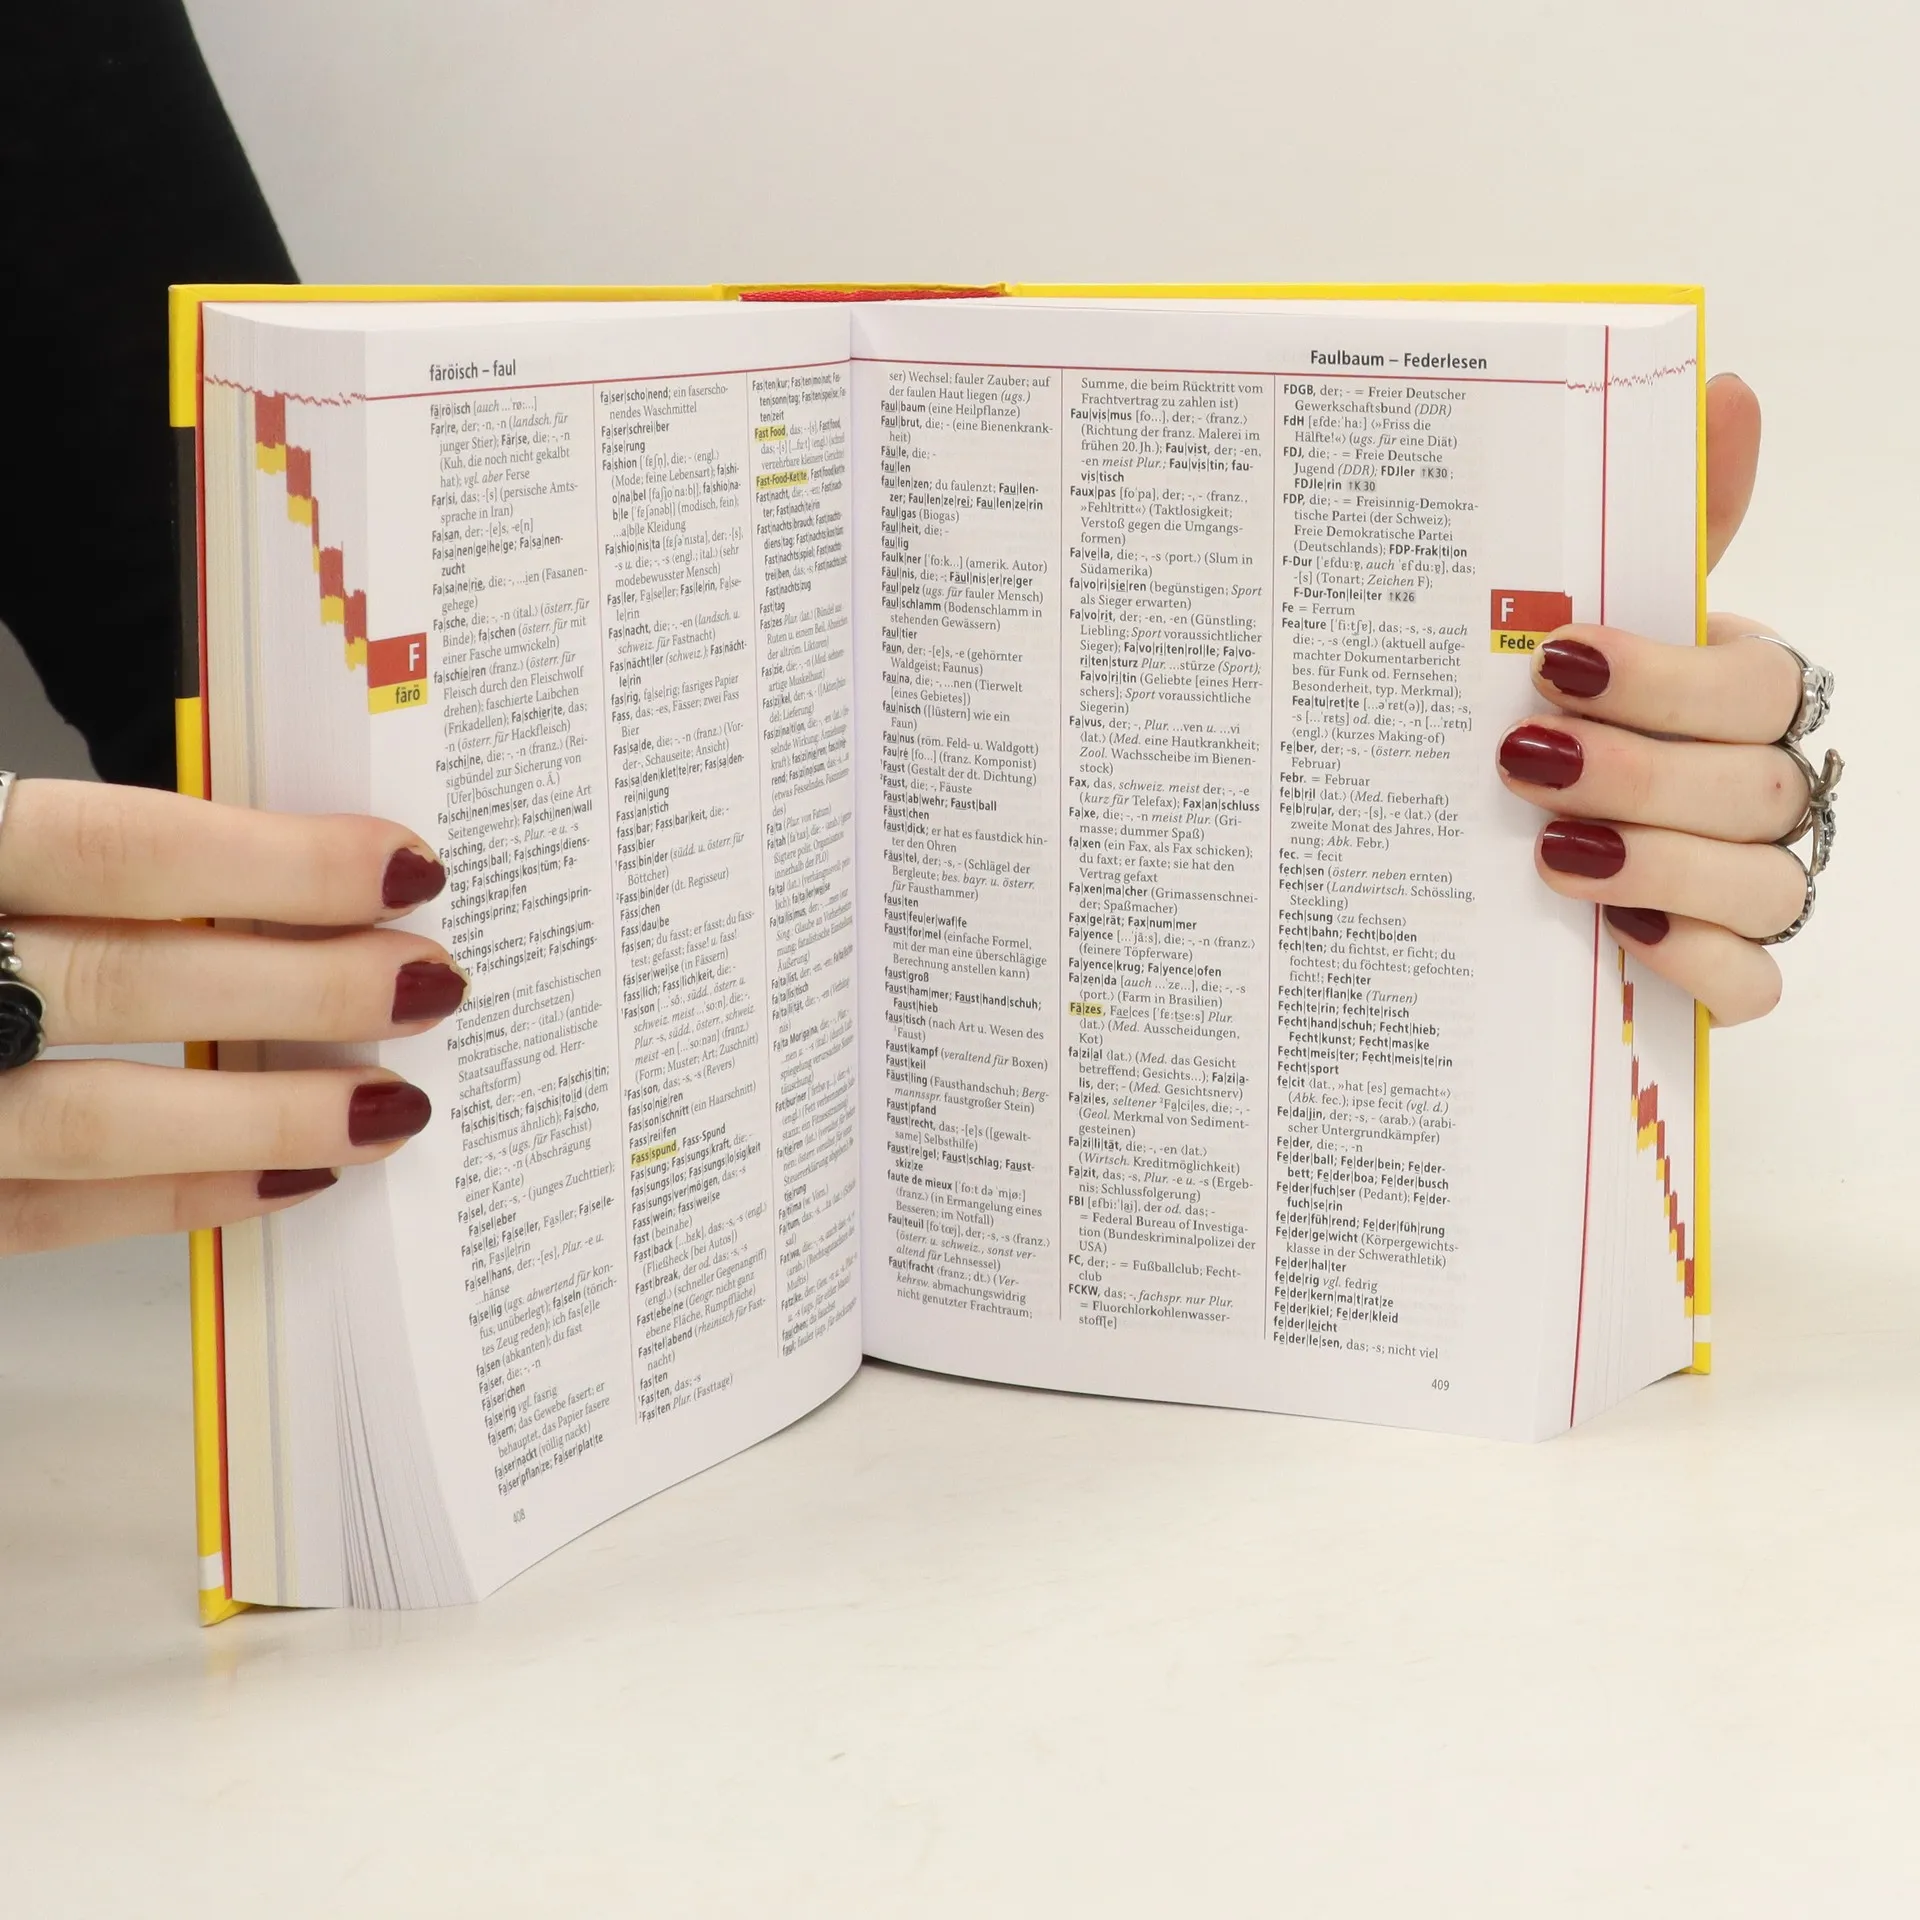 färöisch – faul
F
färö
fä|rö|isch [auch ...ˈrøː...]
Far|re, der; -n, -n (landsch. für
junger Stier); Fär|se, die; -, -n
(Kuh, die noch nicht gekalbt
hat); vgl. aber Ferse
Far|si, das; -[s] (persische Amts-
sprache in Iran)
Fa|san, der; -[e]s, -e[n]
Fa|sa|nen|ge|he|ge; Fa|sa|nen-
zucht
Fa|sa|ne|rie, die; -, ...ien (Fasanen-
gehege)
Fa|sche, die; -, -n ⟨ital.⟩ (österr. für
Binde); fa|schen (österr. für mit
einer Fasche umwickeln)
fa|schie|ren ⟨franz.⟩ (österr. für
Fleisch durch den Fleischwolf
drehen); faschierte Laibchen
(Frikadellen); Fa|schier|te, das;
-n (österr. für Hackfleisch)
Fa|schi|ne, die; -, -n ⟨franz.⟩ (Rei-
sigbündel zur Sicherung von
[Ufer]böschungen o. Ä.)
Fa|schi|nen|mes|ser, das (eine Art
Seitengewehr); Fa|schi|nen|wall
Fa|sching, der; -s, Plur. -e u. -s
schings|ball; Fa|schings|diens-
tag; Fa|schings|kos|tüm; Fa-
schings|krap|fen
Fa|schings|prinz; Fa|schings|prin-
zes|sin
schings|scherz; Fa|schings|um-
Fa|schings|zeit; Fa|schings-
schi|sie|ren (mit faschistischen
Tendenzen durchsetzen)
Fa|schis|mus, der; - ⟨ital.⟩ (antide-
mokratische, nationalistische
Staatsauffassung od. Herr-
schaftsform)
Fa|schist, der; -en, -en; Fa|schis|tin;
fa|schis|tisch; fa|schis|to|id (dem
Faschismus ähnlich); Fa|scho,
der; -s, -s (ugs. für Faschist)
Fa|se, die; -, -n (Abschrägung
einer Kante)
Fa|sel, der; -s, - (junges Zuchttier);
Fa|sel|eber
Fa|se|lei; Fa|se|ler, Fas|ler; Fa|se|le-
rin, Fas|le|rin
Fa|sel|hans, der; -[es], Plur. -e u.
...hänse
fa|se|lig (ugs. abwertend für kon-
fus, unüberlegt); fa|seln (törich-
tes Zeug reden); ich fas[e]le
fa|sen (abkanten); du fast
Fa|ser, die; -, -n
Fä|ser|chen
fa|se|rig vgl. fasrig
fa|sern; das Gewebe fasert; er
behauptet, das Papier fasere
fa|ser|nackt (völlig nackt)
Fa|ser|pflan|ze; Fa|ser|plat|te
fa|ser|scho|nend; ein faserscho-
nendes Waschmittel
Fa|ser|schrei|ber
Fa|se|rung
Fa|shion [ˈfɛʃn̩], die; - ⟨engl.⟩
(Mode; feine Lebensart); fa|shi-
o|na|bel [faʃi̯oˈnaːbl̩], fa|shio|na-
b|le [ˈfɛʃənəbl̩] (modisch, fein);
...a|b|le Kleidung
Fa|shio|nis|ta [fɛʃəˈnɪsta], der; -[s],
-s u. die; -, -s ⟨engl.; ital.⟩ (sehr
modebewusster Mensch)
Fas|ler, Fa|se|ler; Fas|le|rin, Fa|se-
le|rin
Fas|nacht, die; -, -en (landsch. u.
schweiz. für Fastnacht)
Fas|nächt|ler (schweiz.); Fas|nächt-
le|rin
fas|rig, fa|se|rig; fasriges Papier
Fass, das; -es, Fässer; zwei Fass
Bier
Fas|sa|de, die; -, -n ⟨franz.⟩ (Vor-
der-, Schauseite; Ansicht)
Fas|sa|den|klet|te|rer; Fas|sa|den-
rei|ni|gung
Fass|an|stich
fass|bar; Fass|bar|keit, die; -
Fass|bier
¹Fass|bin|der (südd. u. österr. für
Böttcher)
²Fass|bin|der (dt. Regisseur)
Fäss|chen
Fass|dau|be
fas|sen; du fasst; er fasst; du fass-
test; gefasst; fasse! u. fass!
fäs|ser|wei|se (in Fässern)
fass|lich; Fass|lich|keit, die; -
¹Fas|son [...ˈsõː, südd., österr. u.
schweiz. meist ...ˈsoːn], die; -,
Plur. -s, südd., österr., schweiz.
meist -en [...ˈsoːnən] ⟨franz.⟩
(Form; Muster; Art; Zuschnitt)
²Fas|son, das; -s, -s (Revers)
fas|so|nie|ren
Fas|son|schnitt (ein Haarschnitt)
Fass|rei|fen
Fass|spund, Fass-Spund
Fas|sung; Fas|sungs|kraft, die; -
fas|sungs|los; Fas|sungs|lo|sig|keit
Fas|sungs|ver|mö|gen, das; -s
Fass|wein; fass|wei|se
fast (beinahe)
Fast|back [...bɛk], das; -s, -s ⟨engl.⟩
(Fließheck [bei Autos])
Fast|break, der od. das; -s, -s
⟨engl.⟩ (schneller Gegenangriff)
Fast|ebe|ne (Geogr. nicht ganz
ebene Fläche, Rumpffläche)
Fas|tel|abend (rheinisch für Fast-
nacht)
fas|ten
¹Fas|ten, das; -s
²Fas|ten Plur. (Fasttage)
Fas|ten|kur; Fas|ten|mo|nat; Fas-
ten|sonn|tag; Fas|ten|spei|se; Fas-
ten|zeit
Fast Food, das; - -[s], Fast|food,
das; -[s] [...fuːt] ⟨engl.⟩ (schnell
verzehrbare kleinere Gerichte)
Fast-Food-Ket|te, Fast|food|ket|te
Fast|nacht, die; -, -en; Fast|nach-
ter; Fast|nach|te|rin
Fast|nachts|brauch; Fast|nachts-
diens|tag; Fast|nachts|kos|tüm;
Fast|nachts|spiel; Fast|nachts-
trei|ben, das, -s; Fast|nachts|zeit
Fast|nachts|zug
Fast|tag
408
Faulbaum – Federlesen
F
Fede
ser) Wechsel; fauler Zauber; auf
der faulen Haut liegen (ugs.)
Faul|baum (eine Heilpflanze)
Faul|brut, die; - (eine Bienenkrank-
heit)
Fäu|le, die; -
fau|len
fau|len|zen; du faulenzt; Fau|len-
zer; Fau|len|ze|rei; Fau|len|ze|rin
Faul|gas (Biogas)
Faul|heit, die; -
fau|lig
Faulk|ner [ˈfoːk...] (amerik. Autor)
Fäul|nis, die; -; Fäul|nis|er|re|ger
Faul|pelz (ugs. für fauler Mensch)
Faul|schlamm (Bodenschlamm in
stehenden Gewässern)
Faul|tier
Faun, der; -[e]s, -e (gehörnter
Waldgeist; Faunus)
Fau|na, die; -, ...nen (Tierwelt
[eines Gebietes])
fau|nisch ([lüstern] wie ein
Faun)
Fau|nus (röm. Feld- u. Waldgott)
Fau|ré [fo...] (franz. Komponist)
¹Faust (Gestalt der dt. Dichtung)
²Faust, die; -, Fäuste
Faust|ab|wehr; Faust|ball
Fäust|chen
faust|dick; er hat es faustdick hin-
ter den Ohren
Fäus|tel, der; -s, - (Schlägel der
Bergleute; bes. bayr. u. österr.
für Fausthammer)
faus|ten
Faust|feu|er|waf|fe
Faust|for|mel (einfache Formel,
mit der man eine überschlägige
Berechnung anstellen kann)
faust|groß
Faust|ham|mer; Faust|hand|schuh;
Faust|hieb
faus|tisch (nach Art u. Wesen des
¹Faust)
Faust|kampf (veraltend für Boxen)
Faust|keil
Fäust|ling (Fausthandschuh; Berg-
mannsspr. faustgroßer Stein)
Faust|pfand
Faust|recht, das; -[e]s ([gewalt-
same] Selbsthilfe)
Faust|re|gel; Faust|schlag; Faust-
skiz|ze
faute de mieux [ˈfoːt də ˈmi̯øː]
⟨franz.⟩ (in Ermangelung eines
Besseren; im Notfall)
Fau|teuil [foˈtœj], der; -s, -s ⟨franz.⟩
(österr. u. schweiz., sonst ver-
altend für Lehnsessel)
Faut|fracht ⟨franz.; dt.⟩ (Ver-
kehrsw. abmachungswidrig
nicht genutzter Frachtraum;
Summe, die beim Rücktritt vom
Frachtvertrag zu zahlen ist)
Fau|vis|mus [fo...], der; - ⟨franz.⟩
(Richtung der franz. Malerei im
frühen 20. Jh.); Fau|vist, der; -en,
-en meist Plur.; Fau|vis|tin; fau-
vis|tisch
Faux|pas [foˈpa], der; -, - ⟨franz.,
»Fehltritt«⟩ (Taktlosigkeit;
Verstoß gegen die Umgangs-
formen)
Fa|ve|la, die; -, -s ⟨port.⟩ (Slum in
Südamerika)
fa|vo|ri|sie|ren (begünstigen; Sport
als Sieger erwarten)
Fa|vo|rit, der; -en, -en (Günstling;
Liebling; Sport voraussichtlicher
Sieger); Fa|vo|ri|ten|rol|le; Fa|vo-
ri|ten|sturz Plur. ...stürze (Sport);
Fa|vo|ri|tin (Geliebte [eines Herr-
schers]; Sport voraussichtliche
Siegerin)
Fa|vus, der; -, Plur. ...ven u. ...vi
⟨lat.⟩ (Med. eine Hautkrankheit;
Zool. Wachsscheibe im Bienen-
stock)
Fax, das, schweiz. meist der; -, -e
(kurz für Telefax); Fax|an|schluss
Fa|xe, die; -, -n meist Plur. (Gri-
masse; dummer Spaß)
fa|xen (ein Fax, als Fax schicken);
du faxt; er faxte; sie hat den
Vertrag gefaxt
Fa|xen|ma|cher (Grimassenschnei-
der; Spaßmacher)
Fax|ge|rät; Fax|num|mer
Fa|yence [...ˈjãːs], die; -, -n ⟨franz.⟩
(feinere Töpferware)
Fa|yence|krug; Fa|yence|ofen
Fa|zen|da [auch ...ˈzɛ...], die; -, -s
⟨port.⟩ (Farm in Brasilien)
Fä|zes, Fae|ces [ˈfɛːtseːs] Plur.
⟨lat.⟩ (Med. Ausscheidungen,
Kot)
fa|zi|al ⟨lat.⟩ (Med. das Gesicht
betreffend; Gesichts...); Fa|zi|a-
lis, der; - (Med. Gesichtsnerv)
Fa|zi|es, seltener ²Fa|ci|es, die; -, -
(Geol. Merkmal von Sediment-
gesteinen)
Fa|zi|li|tät, die; -, -en ⟨lat.⟩
(Wirtsch. Kreditmöglichkeit)
Fa|zit, das; -s, Plur. -e u. -s (Ergeb-
nis; Schlussfolgerung)
FBI [ɛfbiːˈlaɪ̯], der od. das; -
= Federal Bureau of Investiga-
tion (Bundeskriminalpolizei der
USA)
FC, der; - = Fußballclub; Fecht-
club
FCKW, das; -, fachspr. nur Plur.
= Fluorchlorkohlenwasser-
stoff[e]
FDGB, der; - = Freier Deutscher
Gewerkschaftsbund (DDR)
FdH [ɛfdeːˈhaː] (»Friss die
Hälfte!«) (ugs. für eine Diät)
FDJ, die; - = Freie Deutsche
Jugend (DDR); FDJler ↑K 30;
FDJle|rin ↑K 30
FDP, die; - = Freisinnig-Demokra-
tische Partei (der Schweiz);
Freie Demokratische Partei
(Deutschlands); FDP-Frak|ti|on
F-Dur [ˈɛfduːɐ̯, auch ˈɛfˈduːɐ̯], das;
-[s] (Tonart; Zeichen F);
F-Dur-Ton|lei|ter ↑K 26
Fe = Ferrum
Fea|ture [ˈfiːtʃɐ], das; -s, -s, auch
die; -, -s ⟨engl.⟩ (aktuell aufge-
machter Dokumentarbericht
bes. für Funk od. Fernsehen;
Besonderheit, typ. Merkmal);
Fea|tu|ret|te [...əˈrɛt(ə)], das; -s,
-s [...ˈrɛts] od. die; -, -n [...ˈrɛtn̩]
⟨engl.⟩ (kurzes Making-of)
Fe|ber, der; -s, - (österr. neben
Februar)
Febr. = Februar
fe|b|ril ⟨lat.⟩ (Med. fieberhaft)
Fe|b|ru|ar, der; -[s], -e ⟨lat.⟩ (der
zweite Monat des Jahres, Hor-
nung; Abk. Febr.)
fec. = fecit
fech|sen (österr. neben ernten)
Fech|ser (Landwirtsch. Schössling,
Steckling)
Fech|sung ⟨zu fechsen⟩
Fecht|bahn; Fecht|bo|den
fech|ten; du fichtst, er ficht; du
fochtest; du föchtest; gefochten;
ficht!; Fech|ter
Fech|ter|flan|ke (Turnen)
Fech|te|rin; fech|te|risch
Fecht|hand|schuh; Fecht|hieb;
Fecht|kunst; Fecht|mas|ke
Fecht|meis|ter; Fecht|meis|te|rin
Fecht|sport
fe|cit ⟨lat., »hat [es] gemacht«⟩
(Abk. fec.); ipse fecit (vgl. d.)
Fe|da|jin, der; -s, - ⟨arab.⟩ (arabi-
scher Untergrundkämpfer)
Fe|der, die; -, -n
Fe|der|ball; Fe|der|bein; Fe|der-
bett; Fe|der|boa; Fe|der|busch
Fe|der|fuch|ser (Pedant); Fe|der-
fuch|se|rin
fe|der|füh|rend; Fe|der|füh|rung
Fe|der|ge|wicht (Körpergewichts-
klasse in der Schwerathletik)
Fe|der|hal|ter
fe|de|rig vgl. fedrig
Fe|der|kern|ma|trat|ze
Fe|der|kiel; Fe|der|kleid
fe|der|leicht
Fe|der|le|sen, das; -s; nicht viel
409